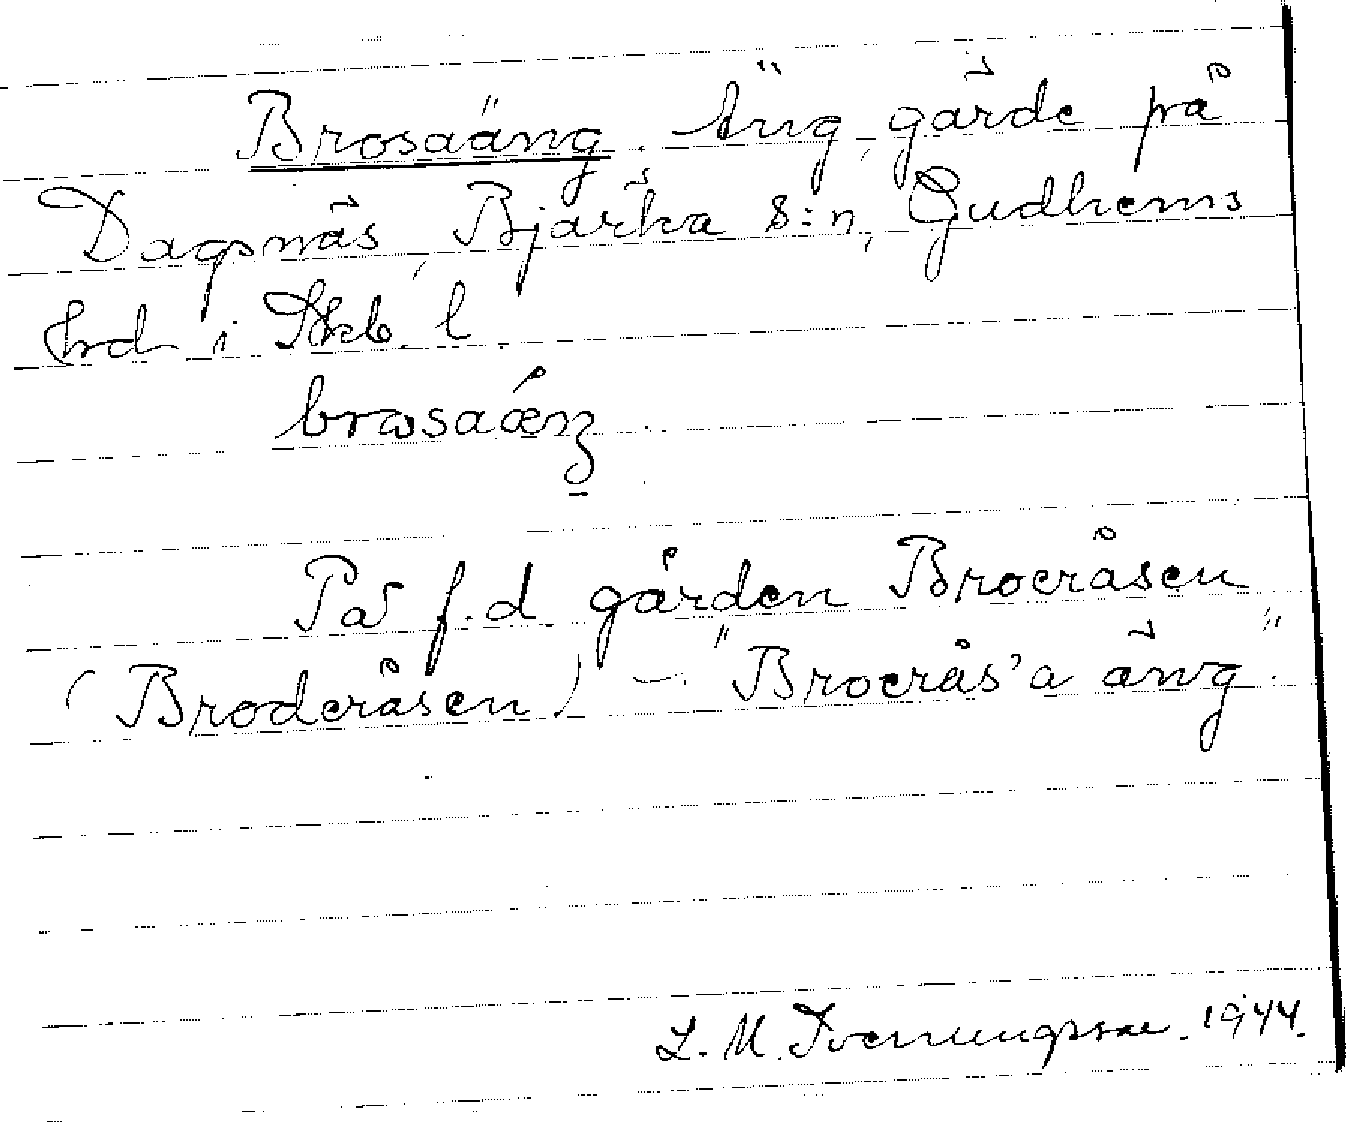 Brosaäng. Äng, gärde på
Dagsnäs, Bjärka s:n, Gudhems
hrd i Skb. l.
På f.d gården Broeråsen
(Broderåsen) – "Broerås'a äng".
L. M. Svenungsson. 1944.